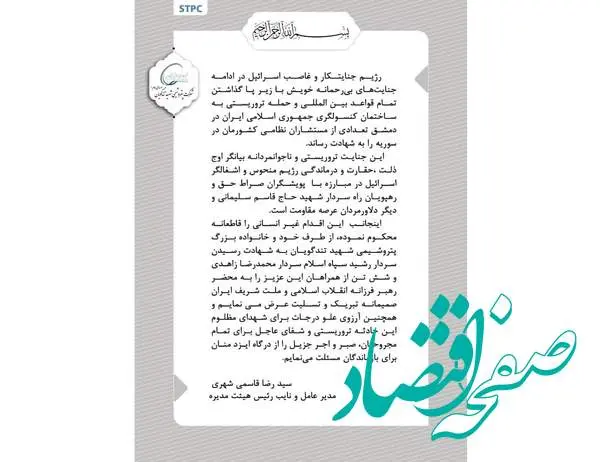 STPC
بسم الله الرحمن الرحیم
رژیم جنایتکار و غاصب اسرائیل در ادامه
جنایت‌های بی‌رحمانه خویش با زیر پا گذاشتن
تمام قواعد بین المللی و حمله تروریستی به
ساختمان کنسولگری جمهوری اسلامی ایران در
دمشق تعدادی از مستشاران نظامی کشورمان در
سوریه را به شهادت رساند.
این جنایت تروریستی و ناجوانمردانه بیانگر اوج
ذلت ،حقارت و درماندگی رژیم منحوس و اشغالگر
اسرائیل در مبارزه با پویشگران صراط حق و
رهپویان راه سردار شهید حاج قاسم سلیمانی و
دیگر دلاورمردان عرصه مقاومت است.
اینجانب این اقدام غیر انسانی را قاطعانه
محکوم نموده، از طرف خود و خانواده بزرگ
پتروشیمی شهید تندگویان به شهادت رسیدن
سردار رشید سپاه اسلام سردار محمدرضا زاهدی
و شش تن از همراهان این عزیز را به محضر
رهبر فرزانه انقلاب اسلامی و ملت شریف ایران
صمیمانه تبریک و تسلیت عرض می نمایم و
همچنین آرزوی علو درجات برای شهدای مظلوم
این حادثه تروریستی و شفای عاجل برای تمام
مجروحان، صبر و اجر جزیل را از درگاه ایزد منان
برای بازماندگان مسئلت می‌نمایم.
سید رضا قاسمی شهری
مدیر عامل و نایب رئیس هیئت مدیره
صفحه اقتصاد